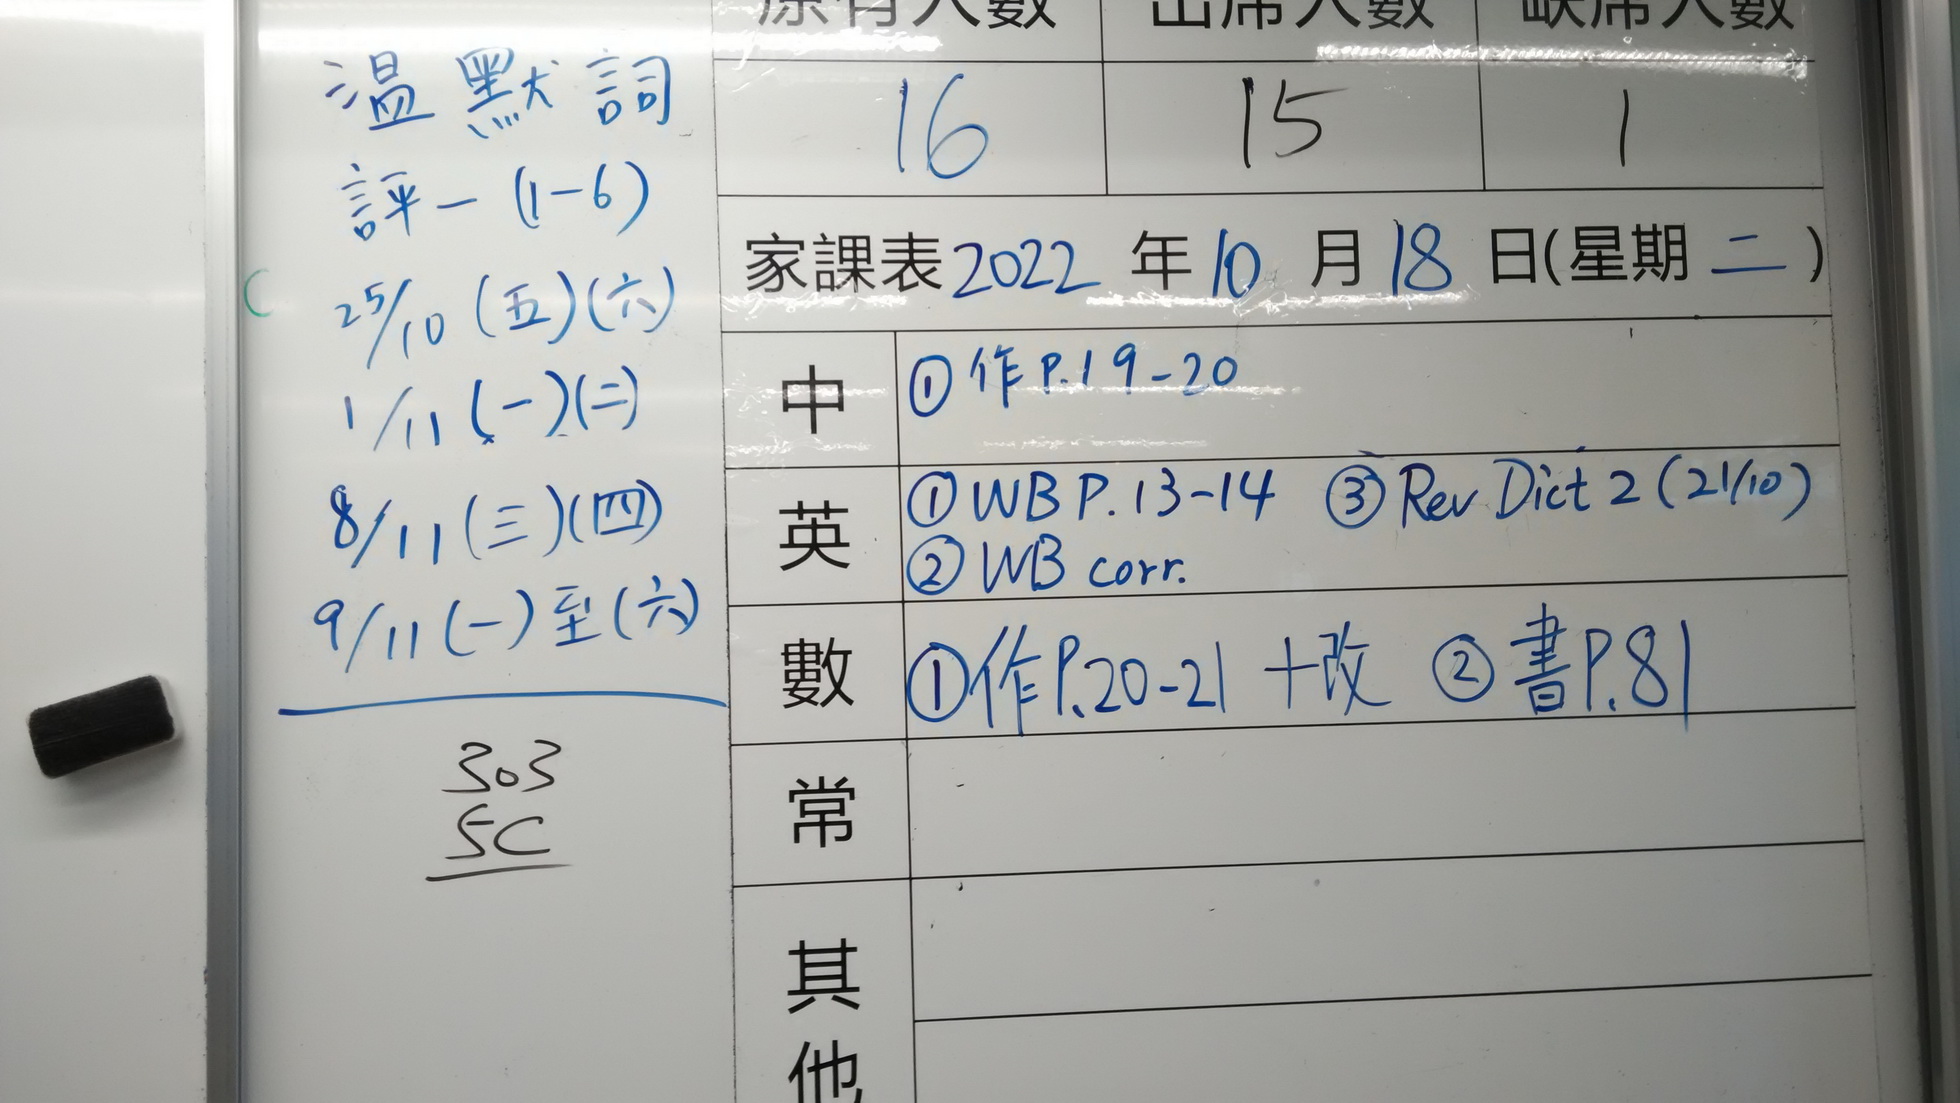 溫默詞
評一 (1-6)
25/10 (五)(六)
1/11 (一)(二)
8/11 (三)(四)
9/11 (一) 至 (六)
303
5C
原有人數 出席人數 缺席人數
16 15 1
家課表 2022 年 10 月 18 日(星期 二 )
中 ① 作 P.19-20
英 ① WB P.13-14 ③ Rev Dict 2 (21/10)
② WB corr.
數 ① 作 P.20-21 +改 ② 書 P.81
常
其
他